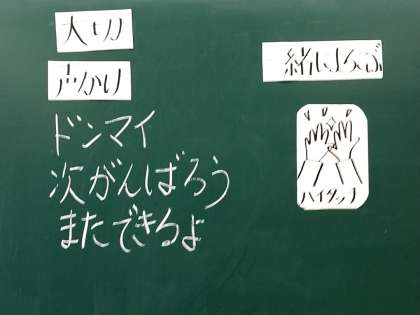 大切
声かけ
ドンマイ
次がんばろう
またできるよ
一緒によろこぶ
ハイタッチ